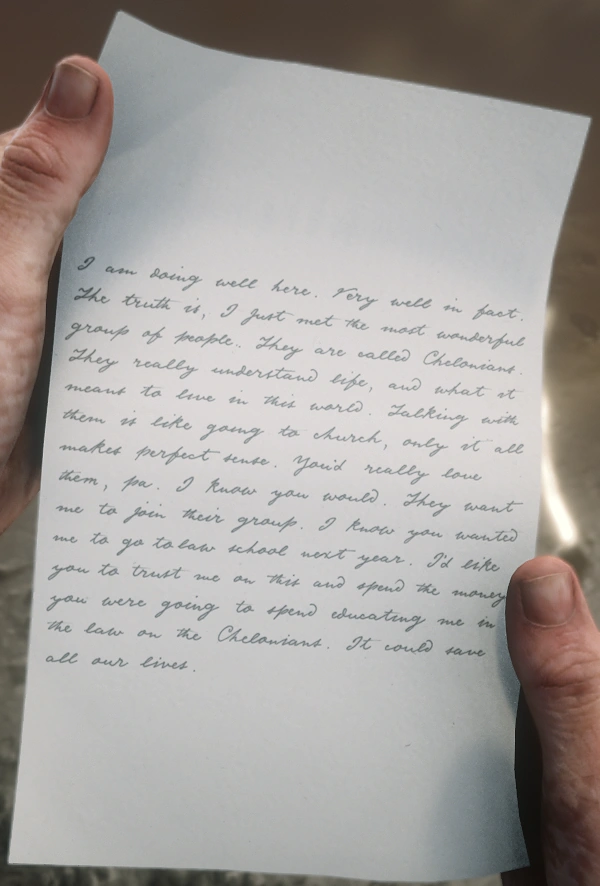 I am doing well here. Very well in fact.
The truth is, I just met the most wonderful
group of people.. They are called Chelonians.
They really understand life, and what it
means to live in this world. Talking with
them is like going to church, only it all
makes perfect sense. You'd really love
them, pa. I know you would. They want
me to join their group. I know you wanted
me to go to law school next year. I'd like
you to trust me on this and spend the money
you were going to spend educating me in
the law on the Chelonians. It could save
all our lives.